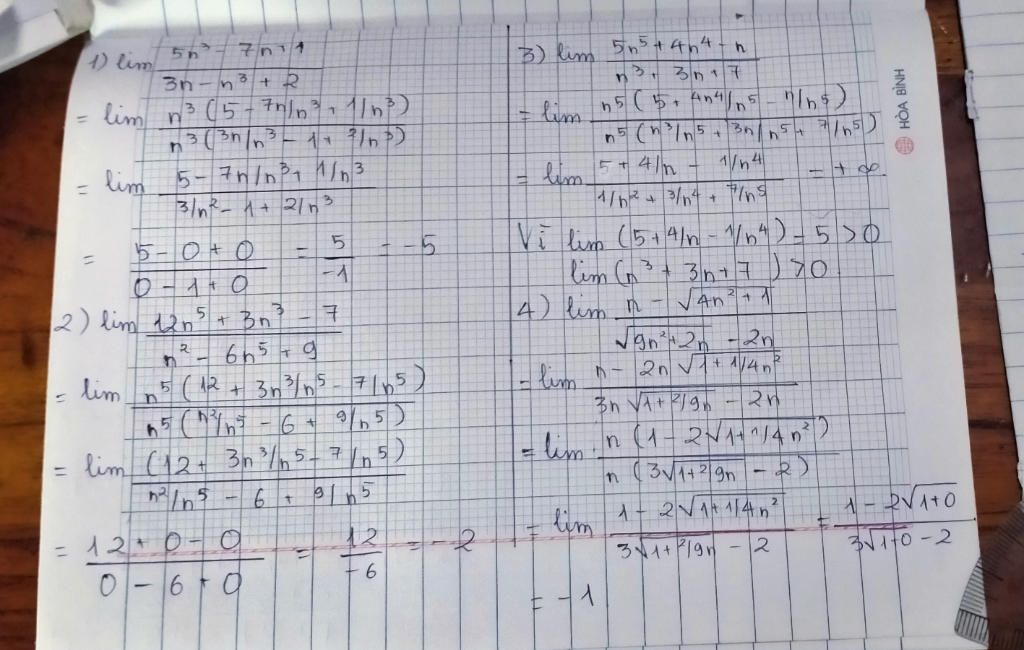 1) lim (5n³ - 7n + 1)/(3n - n³ + 2)
= lim (n³(5 - 7n/n³ + 1/n³))/(n³(3n/n³ - 1 + 2/n³))
= lim (5 - 7n/n³ + 1/n³)/(3/n² - 1 + 2/n³)
= (5 - 0 + 0)/(0 - 1 + 0) = 5/-1 = -5
2) lim (12n⁵ + 3n³ - 7)/(n² - 6n⁵ + 9)
= lim (n⁵(12 + 3n³/n⁵ - 7/n⁵))/(n⁵(n²/n⁵ - 6 + 9/n⁵))
= lim ((12 + 3n³/n⁵ - 7/n⁵))/(n²/n⁵ - 6 + 9/n⁵)
= (12 + 0 - 0)/(0 - 6 + 0) = 12/-6 = -2
3) lim (5n⁵ + 4n⁴ - n)/(n³ + 3n + 7)
= lim (n⁵(5 + 4n⁴/n⁵ - n/n⁵))/(n⁵(n³/n⁵ + 3n/n⁵ + 7/n⁵))
= lim (5 + 4/n - 1/n⁴)/(1/n² + 3/n⁴ + 7/n⁵) = +∞
Vì lim (5 + 4/n - 1/n⁴) = 5 > 0
lim (n³ + 3n + 7) > 0
4) lim (n - √(4n² + 1))/(√(9n² + 2n) - 2n)
= lim (n - 2n√(1 + 1/4n²))/(3n√(1 + 2/9n) - 2n)
= lim (n(1 - 2√(1 + 1/4n²)))/(n(3√(1 + 2/9n) - 2))
= lim (1 - 2√(1 + 1/4n²))/(3√(1 + 2/9n) - 2) = (1 - 2√(1 + 0))/(3√(1 + 0) - 2)
= -1
HÒA BÌNH